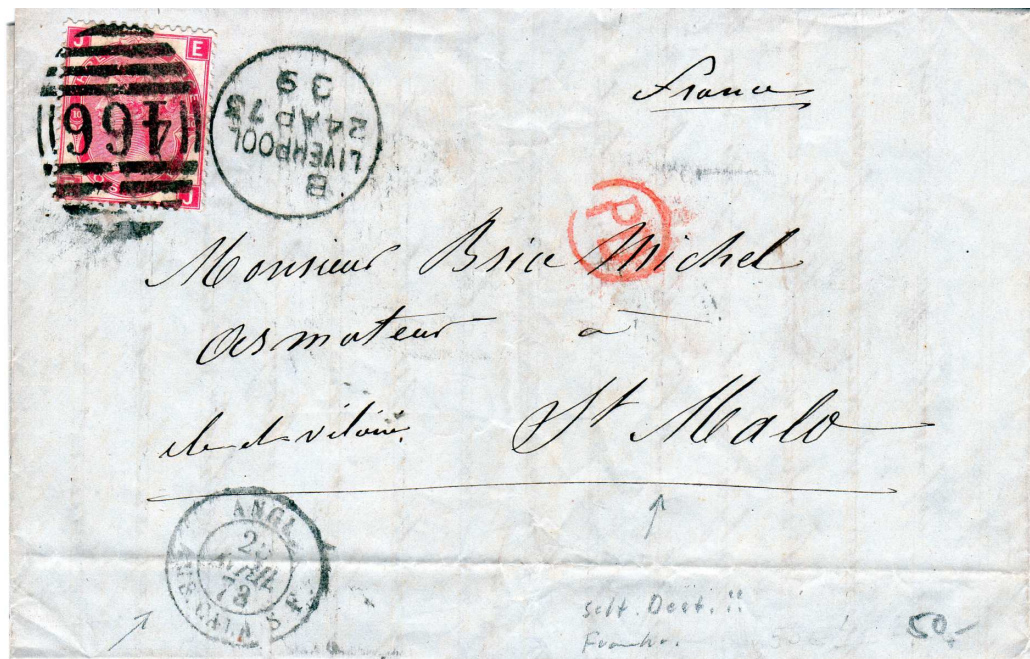 J E
466
J
LIVERPOOL
24 AP 73
39
B
France
PD
Monsieur Brice Michel
Armateur a
ile et vilaine. St Malo
ANGL.
25
AVRIL
73
AMB. CALAIS
selt. Dest. !!
50.-